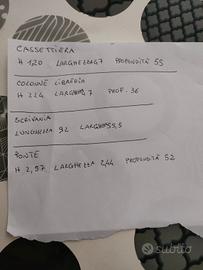 CASSETTIERA
H 120 LARGHEZZA 47 PROFONDITÀ 55
COLONNE LIBRERIA
H 224 LARGH 47 PROF. 36
SCRIVANIA
LUNGHEZZA 92 LARGH 55,5
PONTE
H 2,97 LARGHEZZA 2,44 PROFONDITÀ 52
subito